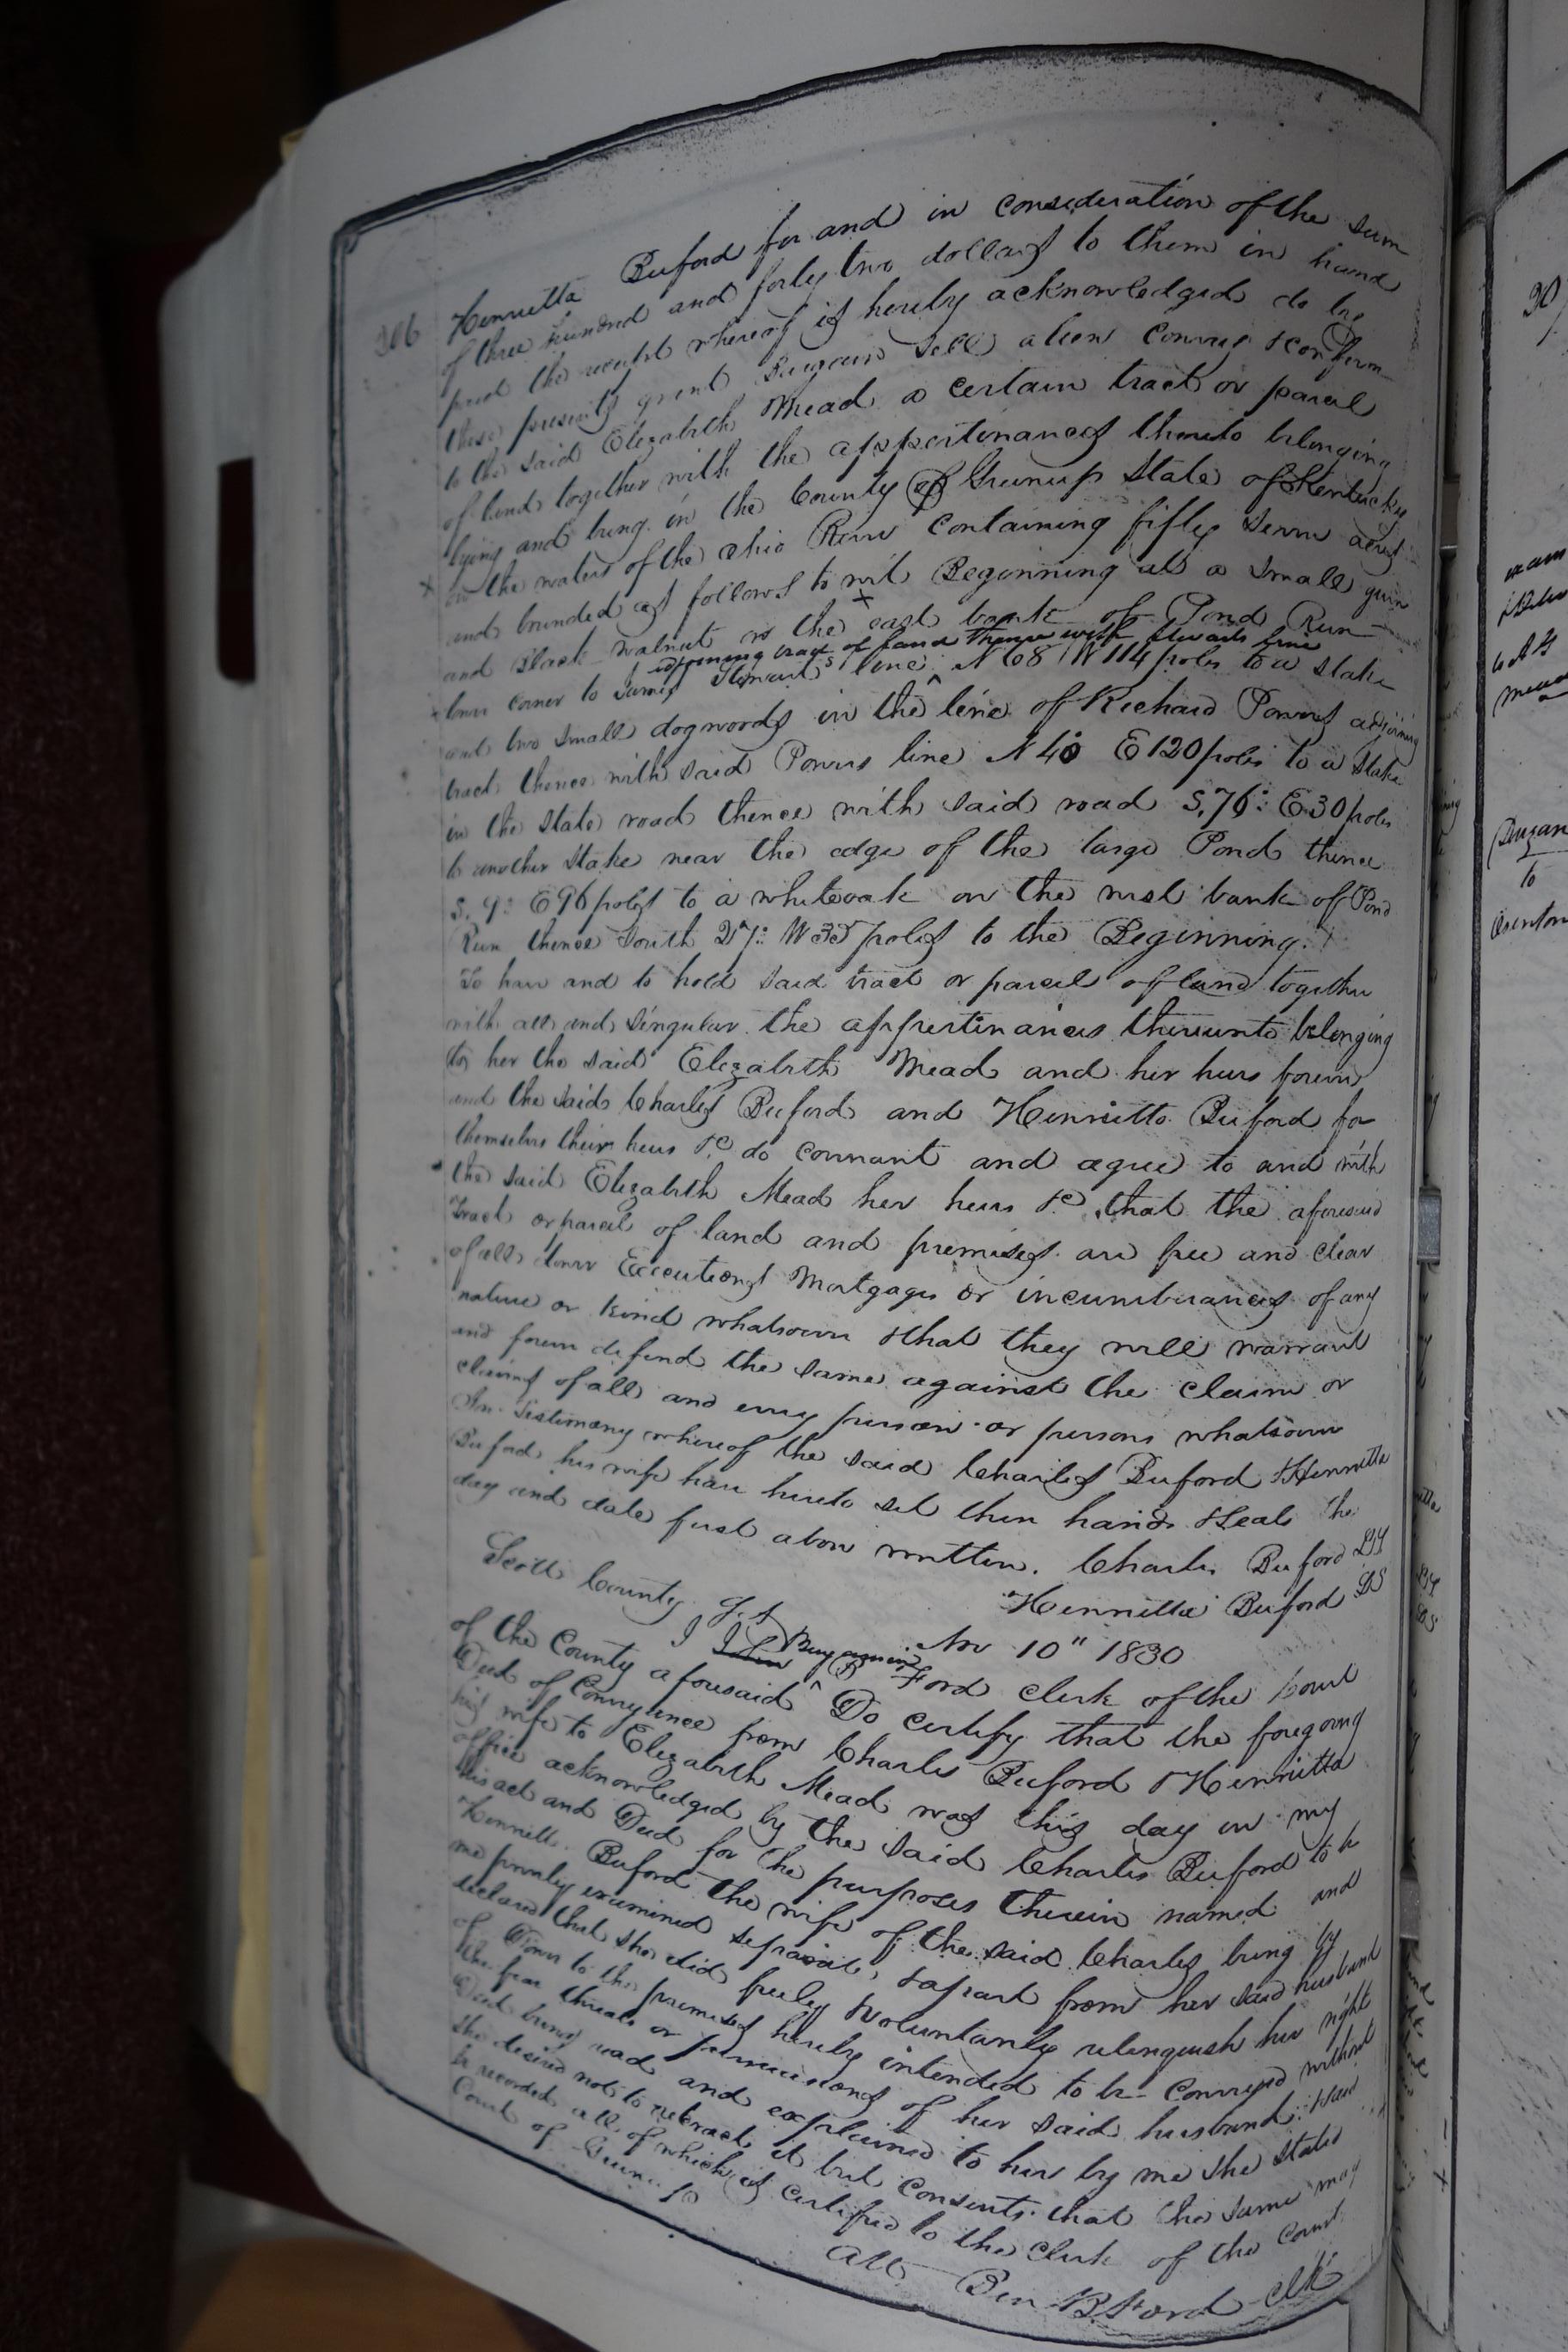 306
Henrietta Buford for and in consideration of the sum
of three hundred and forty two dollars to them in hand
paid the receipt whereof is hereby acknowledged do by
these presents grant Bargain Sell alien Convey &confirm
to the said Elizabeth Mead a certain tract or parcel
of land together with the appertinances thereto belonging
lying and being in the County of Greenup State of Kentucky
on the waters of the Ohio River Containing fifty Seven acres
and bounded as follows to wit Beginning at a Small gum
and Black walnut on the east bank of Pond Run
lower corner to James Stewart's line N 68 W 114 poles to a stake
adjoining tract of land thence with Stewarts line
and two small dogwoods in the line of Richard Powers adjoining
tract thence with said Powers line N 40 E 120 poles to a stake
in the State road thence with said road S. 76° E 30 poles
to another Stake near the edge of the large Pond thence
S. 9° E 96 poles to a whiteoak on the west bank of Pond
Run thence South 27° W 33 poles to the Beginning.
To have and to hold said tract or parcel of land together
with all and singular the appertinances thereunto belonging
to her the said Elizabeth Mead and her heirs forever
and the said Charles Buford and Henrietta Buford for
themselves their heirs &c do covenant and agree to and with
the said Elizabeth Mead her heirs &c that the aforesaid
Tract or parcel of land and premises are free and clear
of all dower Executions Mortgages or incumberances of any
nature or kind whatsoever &that they will warrant
and forever defend the same against the claim or
claims of all and every person or persons whatsoever
In Testimony whereof the said Charles Buford &Henrietta
Buford his wife have hereto set their hands &seals the
day and date first above written. Charles Buford LS
Henrietta Buford LS
Scott County Sct Nov 10" 1830
I John Benjamin B Ford clerk of the Court
of the County aforesaid Do certify that the foregoing
Deed of Conveyance from Charles Buford &Henrietta
his wife to Elizabeth Mead was this day in my
office acknowledged by the said Charles Buford to be
his act and Deed for the purposes therein named and
Henrietta Buford the wife of the said Charles being by
me privily examined separate &apart from her said husband
declared that she did freely &voluntarily relinquish her right
of Dower to the premises hereby intended to be Conveyed without
the fear threats or persuasions of her said husband
Deed being read and explained to her by me she stated
she desired not to retract it but consents that the same may
be recorded all of which is certified to the Clerk of the County
Court of Greenup
Att Ben B Ford clk